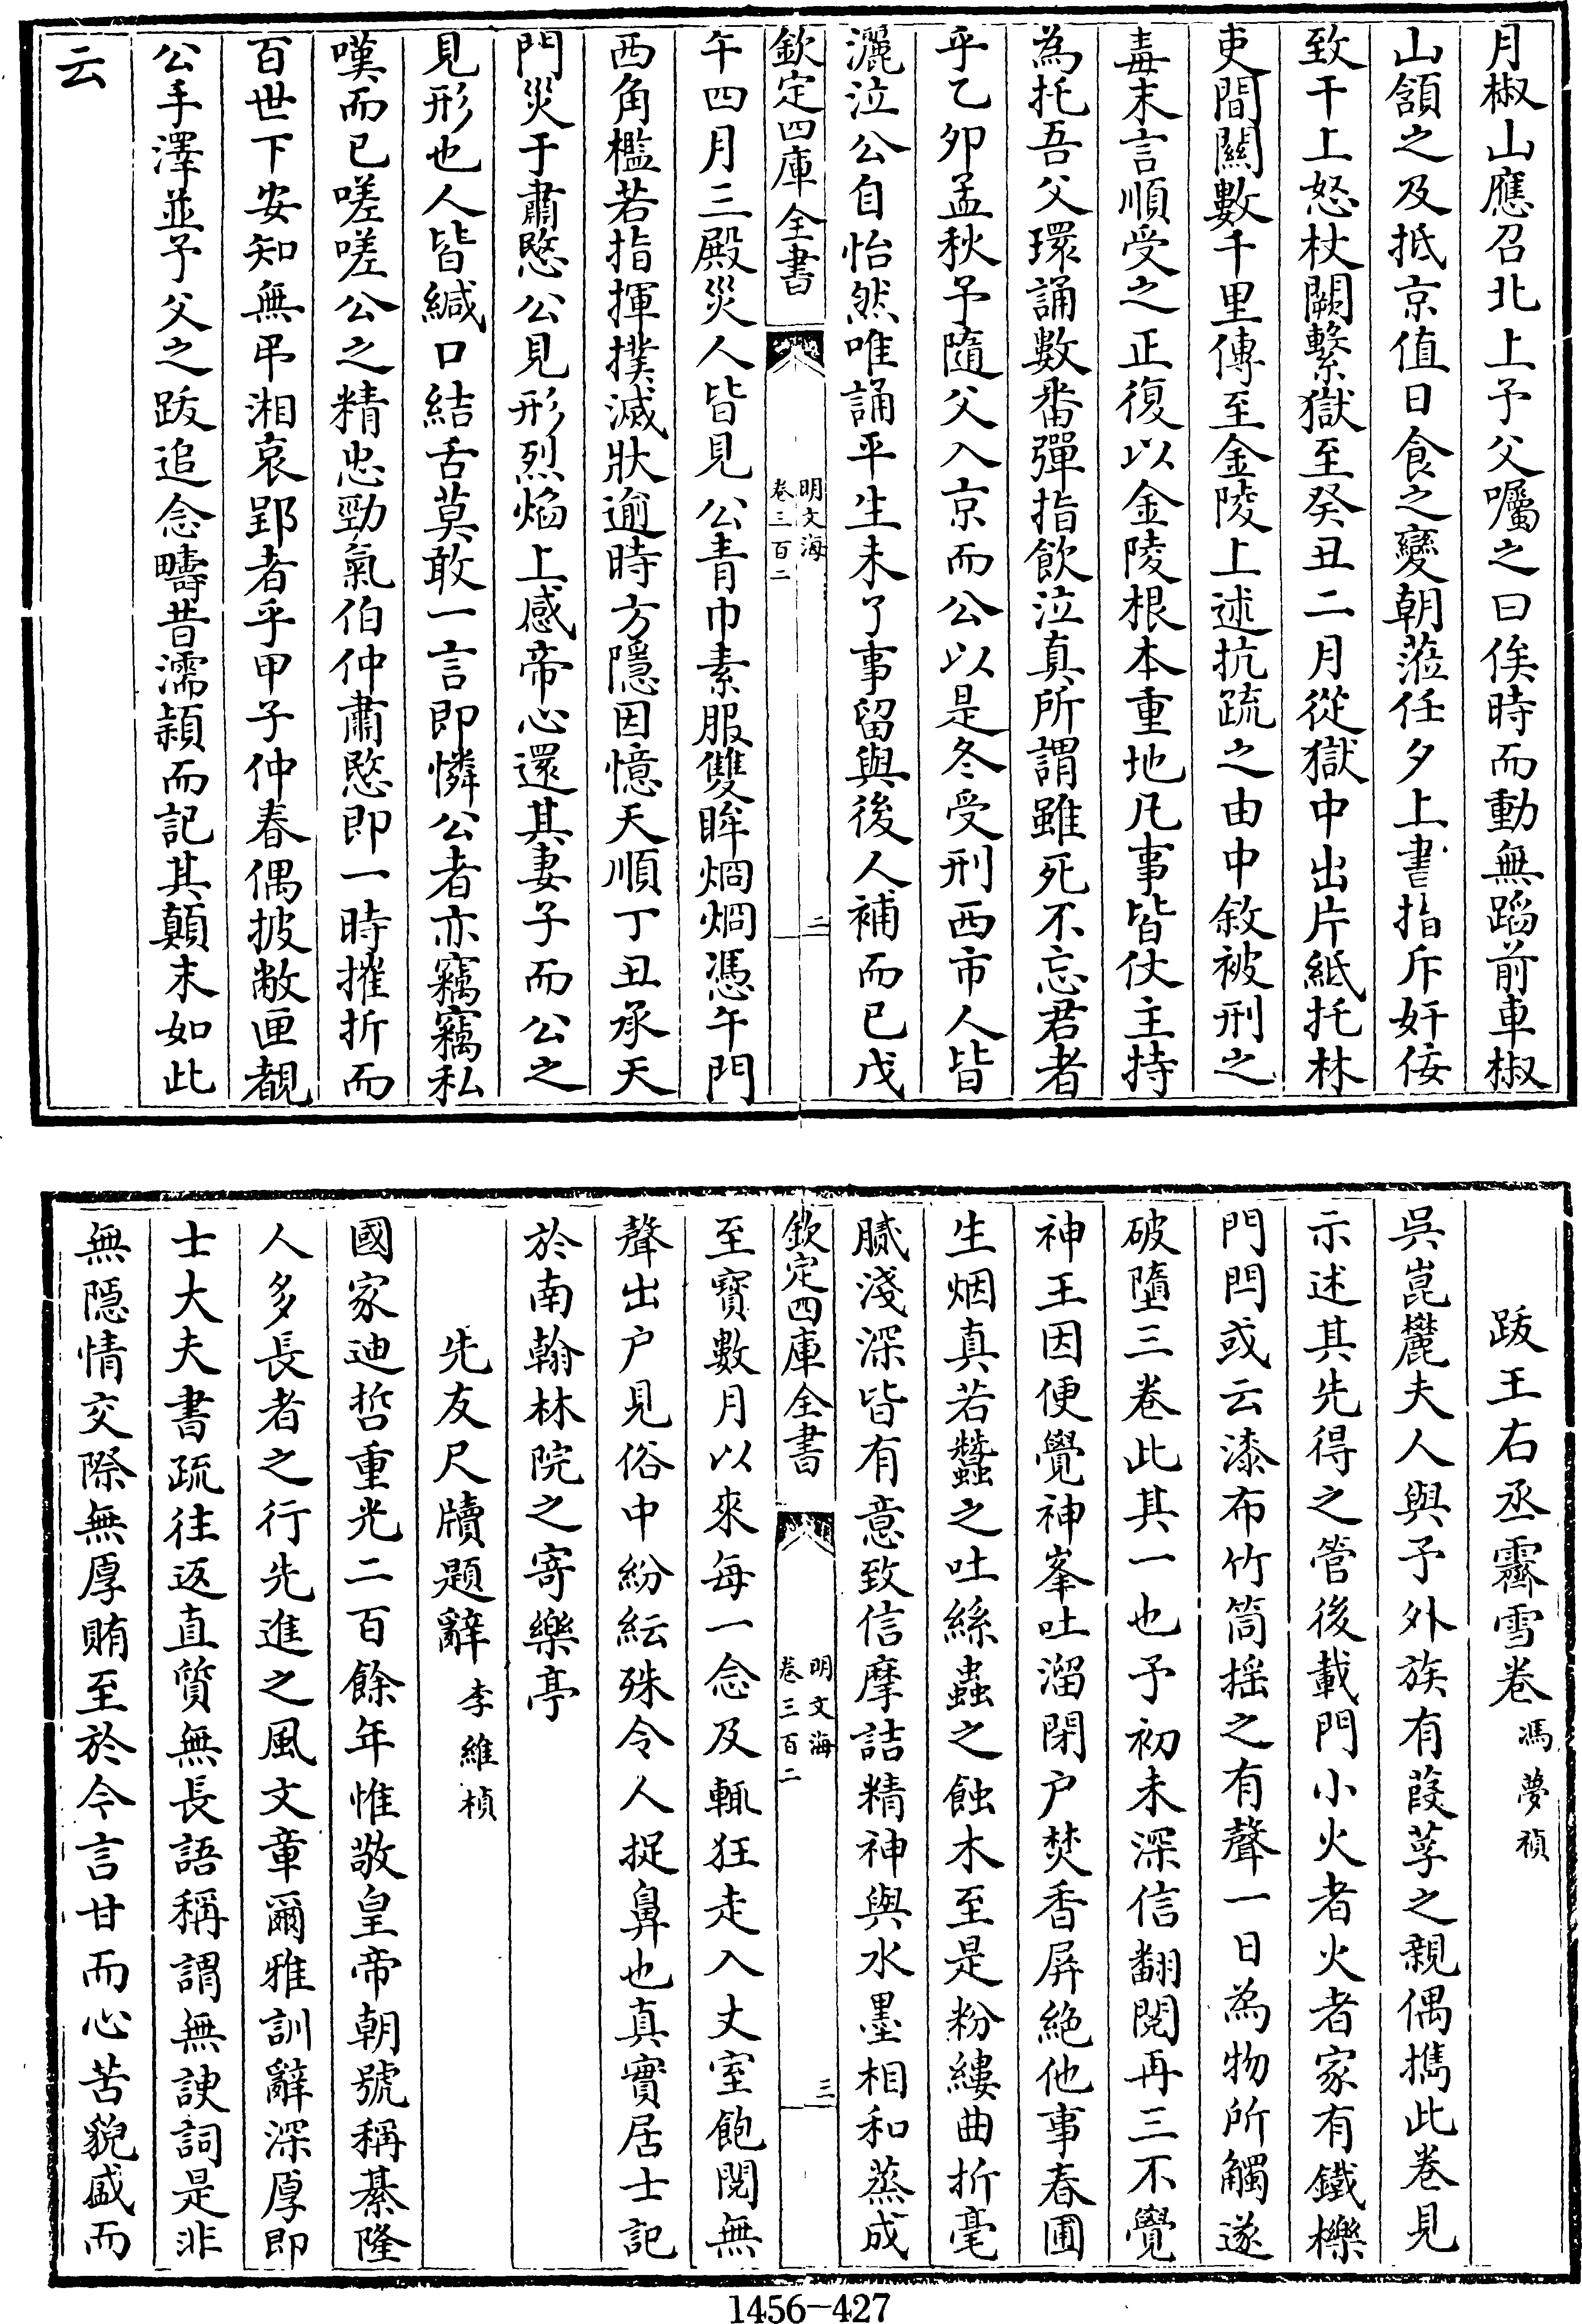 月椒山應召北上予父囑之曰俟時而動無蹈前車椒
山頷之及抵京值日食之變朝蒞任夕上書指斥奸佞
致干上怒杖闕繫獄至癸丑二月從獄中出片紙托林
吏間關數千里傳至金陵上述抗疏之由中敘被刑之
毒末言順受之正復以金陵根本重地凡事皆仗主持
為托吾父環誦數番彈指飲泣真所謂雖死不忘君者
乎乙卯孟秋予隨父入京而公以是冬受刑西市人皆
灑泣公自怡然唯誦平生未了事留與後人補而已戊
欽定四庫全書
明文海
卷三百二
二
午四月三殿災人皆見公青巾素服雙眸烱烱憑午門
西角檻若指揮撲滅狀逾時方隱因憶天順丁丑承天
門災于肅愍公見形烈焰上感帝心還其妻子而公之
見形也人皆緘口結舌莫敢一言即憐公者亦竊竊私
嘆而已嗟嗟公之精忠勁氣伯仲肅愍即一時摧折而
百世下安知無弔湘哀郢者乎甲子仲春偶披敝匣覩
公手澤並予父之跋追念疇昔濡頴而記其顛末如此
云
跋王右丞霽雪卷 馮夢禎
吳崑麓夫人與予外族有葭莩之親偶擕此卷見
示述其先得之管後載門小火者火者家有鐵櫟
門閂或云漆布竹筒揺之有聲一日為物所觸遂
破墮三卷此其一也予初未深信翻閱再三不覺
神王因便覺神峯吐溜閉户焚香屏絶他事春圃
生烟真若蠶之吐絲蟲之蝕木至是粉縷曲折毫
膩淺深皆有意致信摩詰精神與水墨相和蒸成
欽定四庫全書
明文海
卷三百二
三
至寳數月以來每一念及輒狂走入丈室飽閱無
聲出户見俗中紛紜殊令人捉鼻也真實居士記
於南翰林院之寄樂亭
先友尺牘題辭 李維楨
國家迪哲重光二百餘年惟敬皇帝朝號稱綦隆
人多長者之行先進之風文章爾雅訓辭深厚即
士大夫書疏往返直質無長語稱謂無諛詞是非
無隱情交際無厚賄至於今言甘而心苦貌盛而
1456-427